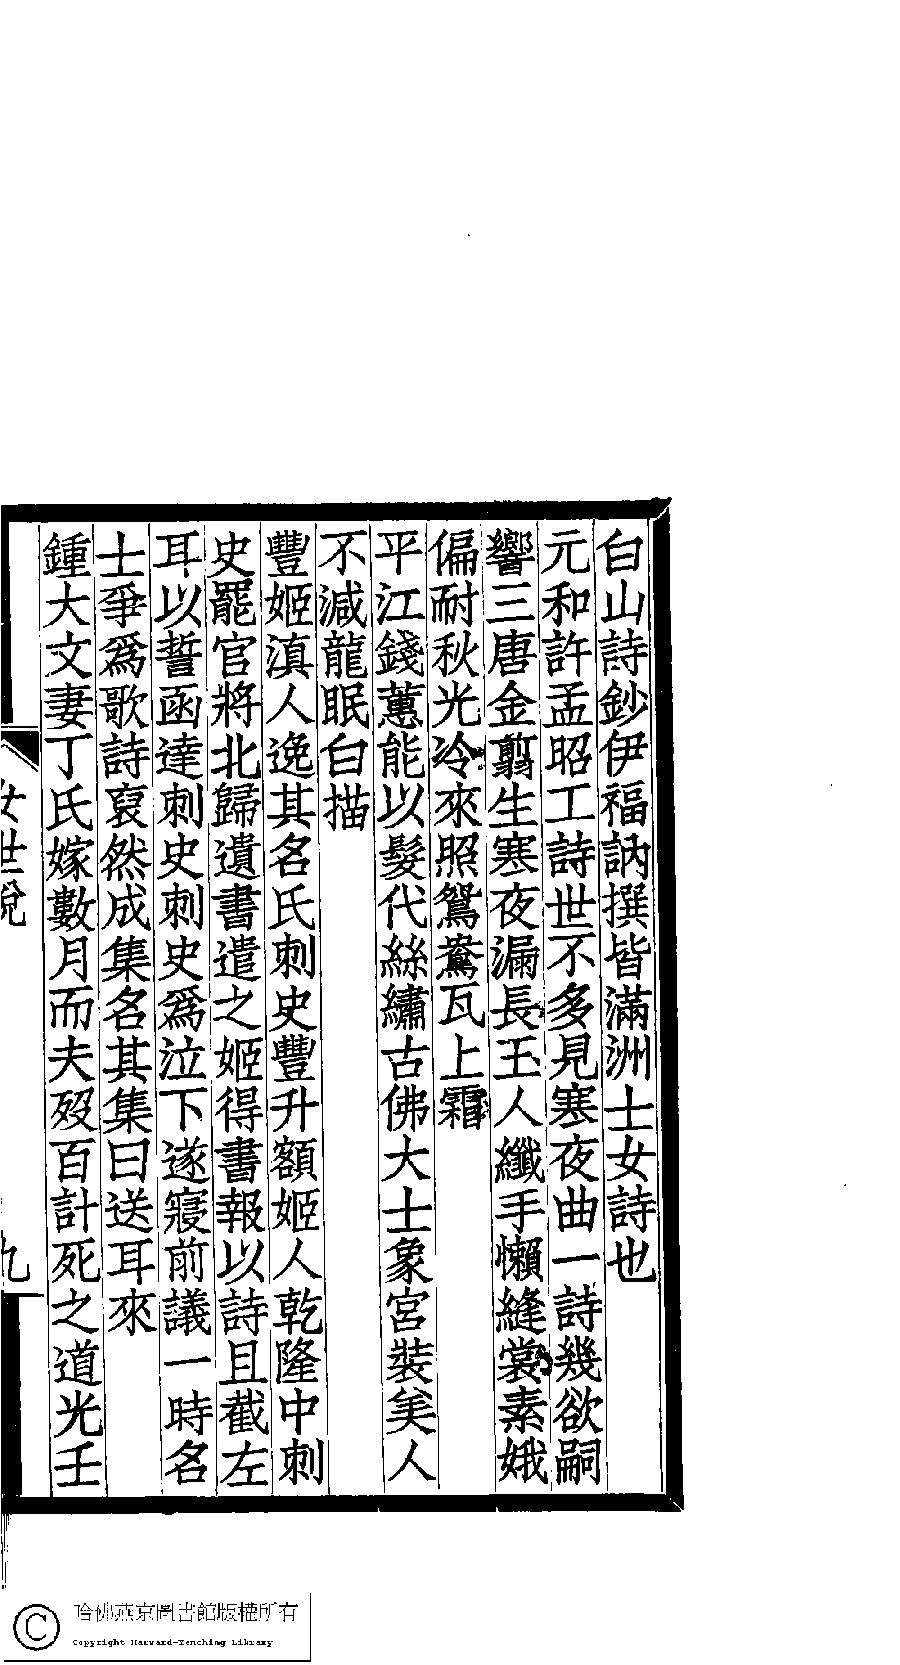 白山詩鈔伊福訥撰皆滿洲士女詩也
元和許孟昭工詩世不多見寒夜曲一詩幾欲嗣
響三唐金翦生寒夜漏長玉人纖手懶縫裳素娥
偏耐秋光冷來照鴛鴦瓦上霜
平江錢蕙能以髮代絲繡古佛大士象宮裝美人
不減龍眠白描
豐姬滇人逸其名氏刺史豐升額姬人乾隆中刺
史罷官將北歸遺書遣之姬得書報以詩且截左
耳以誓函達刺史刺史爲泣下遂寢前議一時名
士爭爲歌詩裒然成集名其集曰送耳來
鍾大文妻丁氏嫁數月而夫歿百計死之道光壬
女世說
九
哈佛燕京圖書館版權所有
Copyright Harvard-Yenching Library